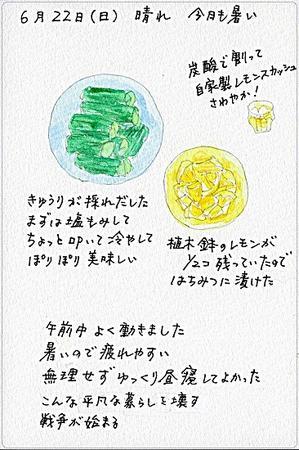 6月22日(日) 晴れ 今日も暑い
炭酸で割って
自家製レモンスカッシュ
さわやか!
きゅうりが採れだした
まずは塩もみして
ちょっと叩いて冷やして
ぽりぽり美味しい
植木鉢のレモンが
1/2コ残っていたので
はちみつに漬けた
午前中よく働きました
暑いので疲れやすい
無理せずゆっくり昼寝してよかった
こんな平凡な暮らしを壊す
戦争が始まる